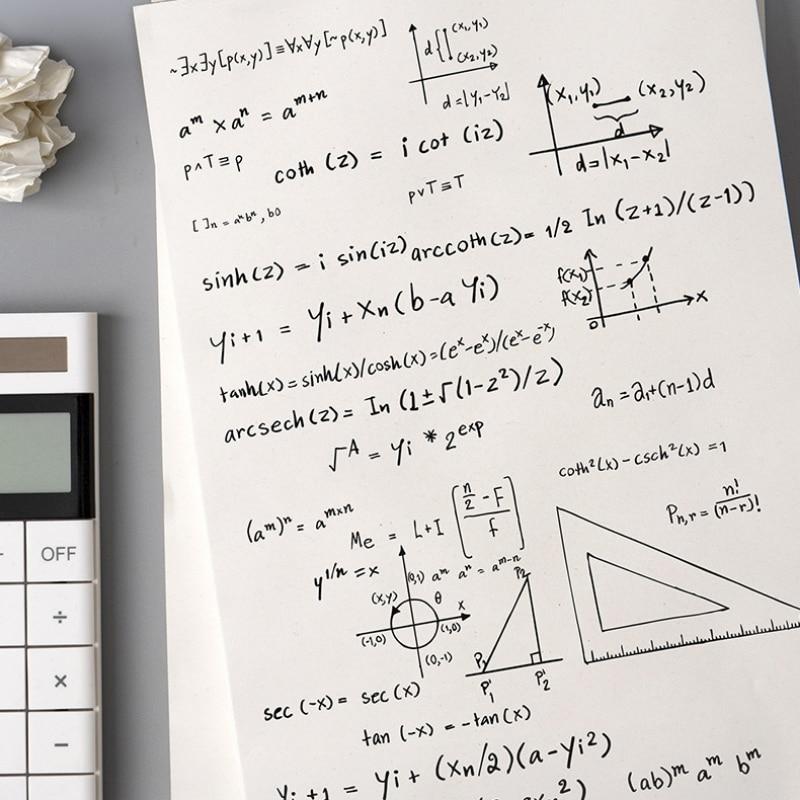 ~∃x∃y[p(x,y)]≡∀x∀y[~p(x,y)]
(x₁,y₁)
d
(x₂,y₂)
d=|Y₁-Y₂|
aᵐ × aⁿ = aᵐ⁺ⁿ
(x₁,y₁) (x₂,y₂)
d
d=|x₁-x₂|
p∧T≡p
coth (z) = i cot (iz)
p∨T≡T
[ ]n = aⁿbⁿ, b0
sinh(z) = i sin(iz)
arccoth(z)= 1/2 In (z+1)/(z-1))
f(x₁)
f(x₂)
0
x
Yi+1 = Yi+Xn(b-a Yi)
tanh(x)=sinh(x)/cosh(x)=(eˣ-eˣ)/(eˣ-e⁻ˣ)
arcsech(z)= In (1±√(1-z²)/z)
aₙ=a₁+(n-1)d
√A = Yi * 2ᵉˣᵖ
coth²(x)-csch²(x)=1
(aᵐ)ⁿ = aᵐˣⁿ
Me = L+I [(n/2 -F)/f]
Pn,r= n!/(n-r)!
y¹/ⁿ =x
(0,1)
aᵐ aⁿ = aᵐ⁻ⁿ
(x,y)
θ
x
(-1,0)
(1,0)
(0,-1)
P₂
P₁
P'₁
P'₂
sec (-x) = sec (x)
tan (-x) = -tan(x)
Yi+1 = Yi+ (Xn/2)(a-Yi²)
(ab)ᵐ aᵐ bᵐ
OFF
÷
×
−